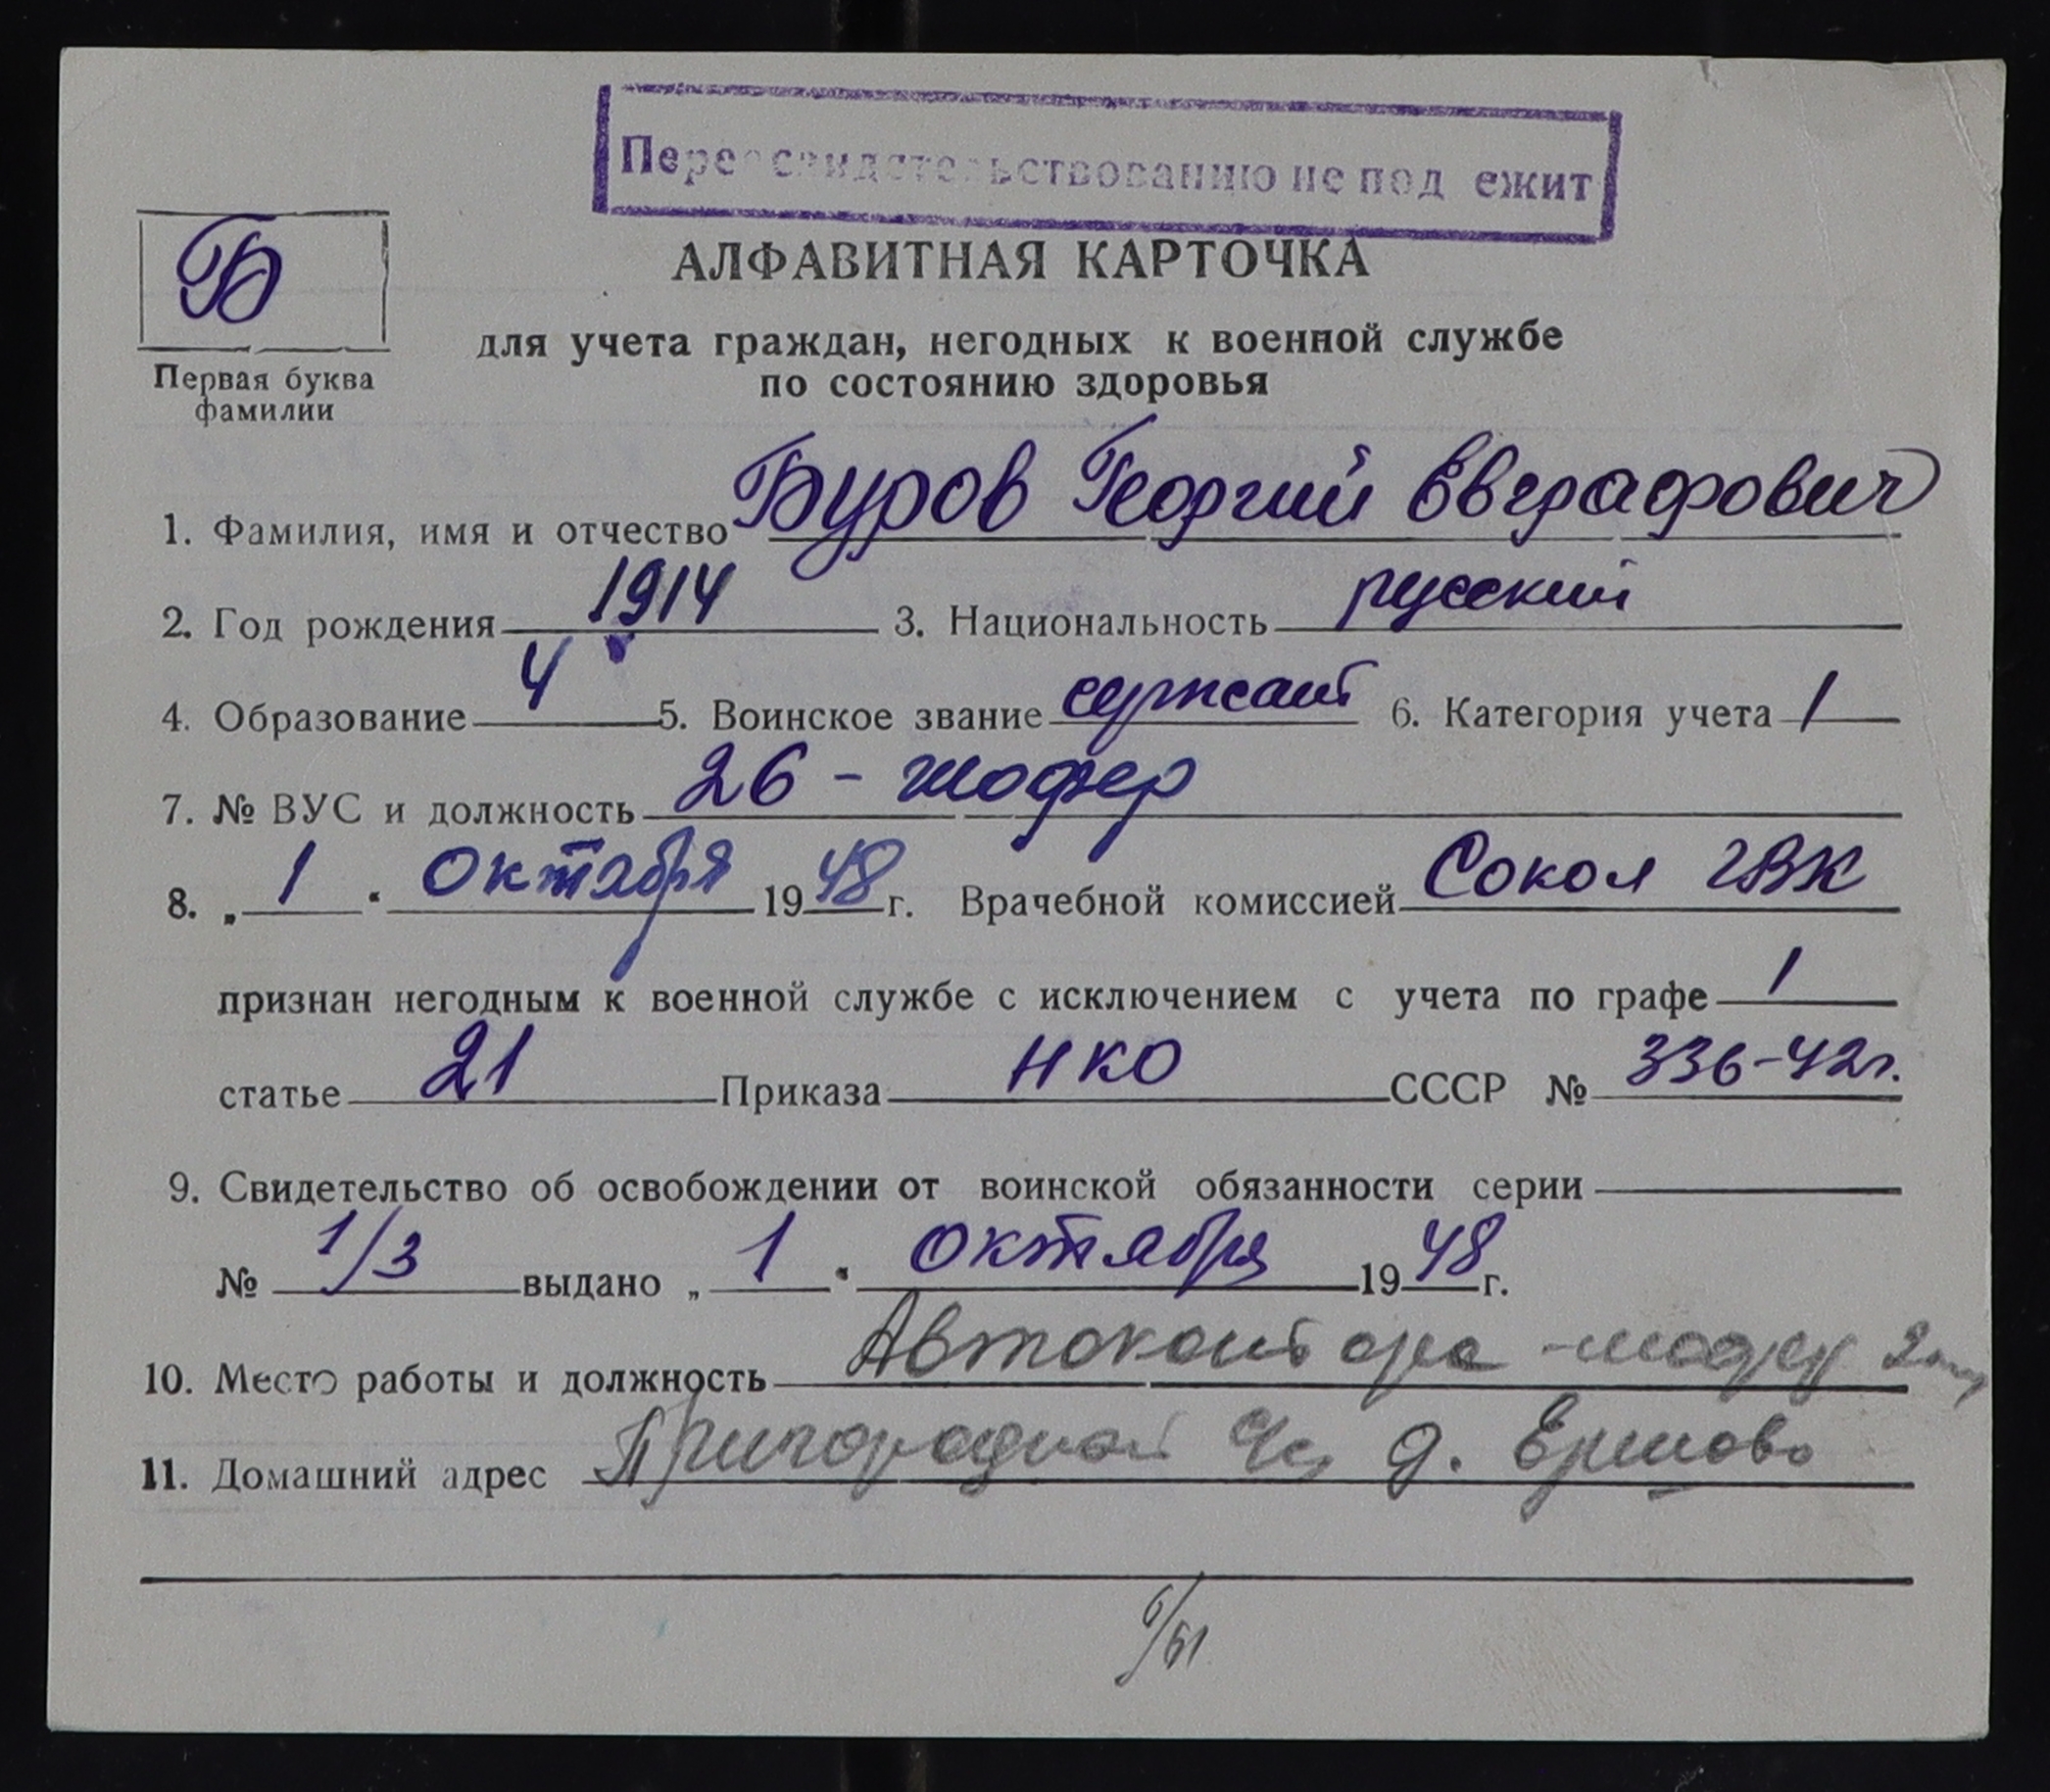 Переосвидетельствованию не подлежит
Б
Первая буква
фамилии
АЛФАВИТНАЯ КАРТОЧКА
для учета граждан, негодных к военной службе
по состоянию здоровья
1. Фамилия, имя и отчество Буров Георгий Евграфович
2. Год рождения 1914 3. Национальность русский
4. Образование 4 5. Воинское звание сержант 6. Категория учета 1
7. № ВУС и должность 26 - шофер
8. „ 1 “ Октября 1948 г. Врачебной комиссией Сокол ГВК
признан негодным к военной службе с исключением с учета по графе 1
статье 21 Приказа НКО СССР № 336-42г.
9. Свидетельство об освобождении от воинской обязанности серии
№ 1/3 выдано „ 1 “ Октября 1948 г.
10. Место работы и должность Автоконтора - шофер
11. Домашний адрес Пригородной д. Ершово
6/61